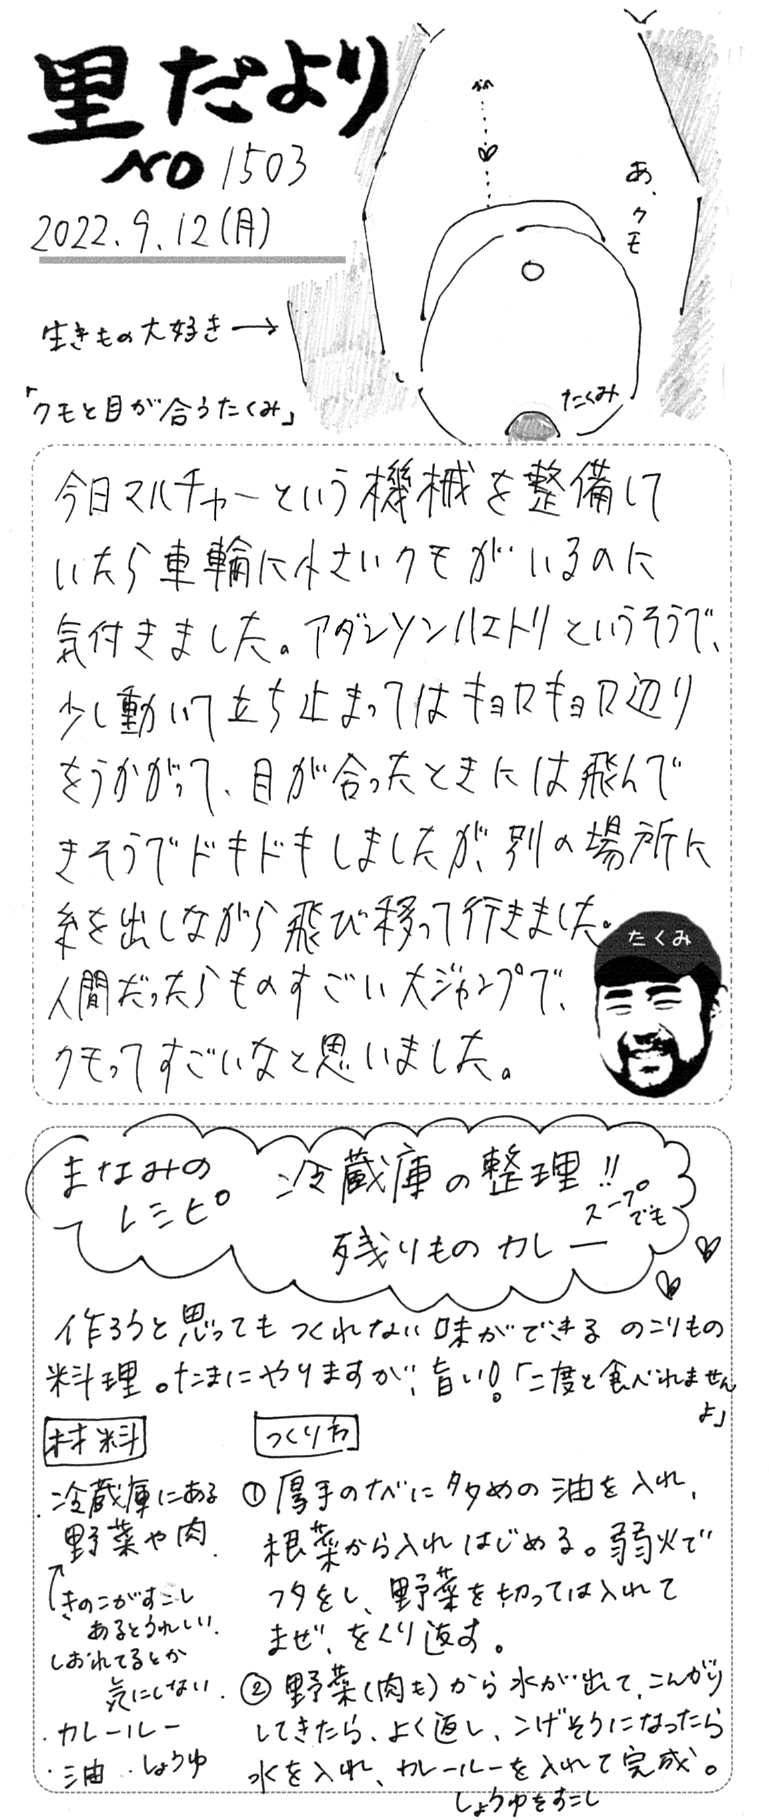 里だより
NO 1503
2022.9.12(月)
あ、クモ
生きもの大好き→
「クモと目が合うたくみ」
たくみ
今日マルチャーという機械を整備して
いたら車輪に小さいクモがいるのに
気付きました。アダンソンハエトリというそうで、
少し動いて立ち止まってはキョロキョロ辺り
をうかがって、目が合ったときには飛んで
きそうでドキドキしましたが、別の場所に
糸を出しながら飛び移って行きました。
人間だったらものすごい大ジャンプで、
クモってすごいなと思いました。
たくみ
まなみの
レシピ
冷蔵庫の整理!!
残りものカレー
スープでも
作ろうと思ってもつくれない味ができるのこりもの
料理。たまにやりますが、旨い!。「二度と食べれません
よ」
材料
冷蔵庫にある
野菜や肉
きのこがすこし
あるとうれしい.
しおれてるとか
気にしない.
・カレールー
・油 ・しょうゆ
つくり方
① 厚手のナベに多めの油を入れ、
根菜から入れはじめる。弱火で
フタをし、野菜を切っては入れて
まぜ、をくり返す。
② 野菜(肉も)から水が出て、こんがり
してきたら、よく返し、こげそうになったら
水を入れ、カレールーを入れて完成。
しょうゆをすこし